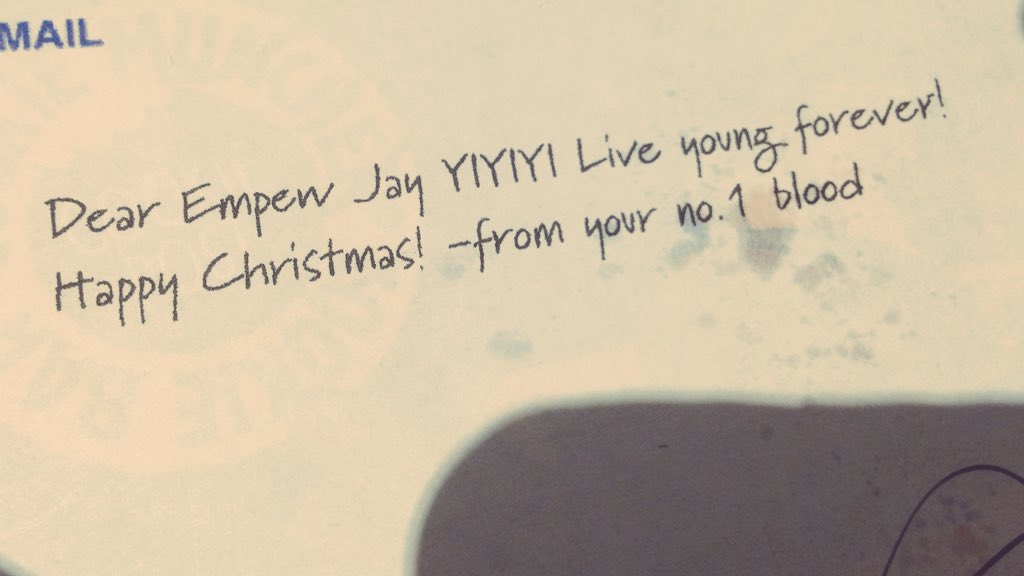 MAIL
Dear Empew Jay YIYIYI Live young forever!
Happy Christmas! -from your no.1 blood